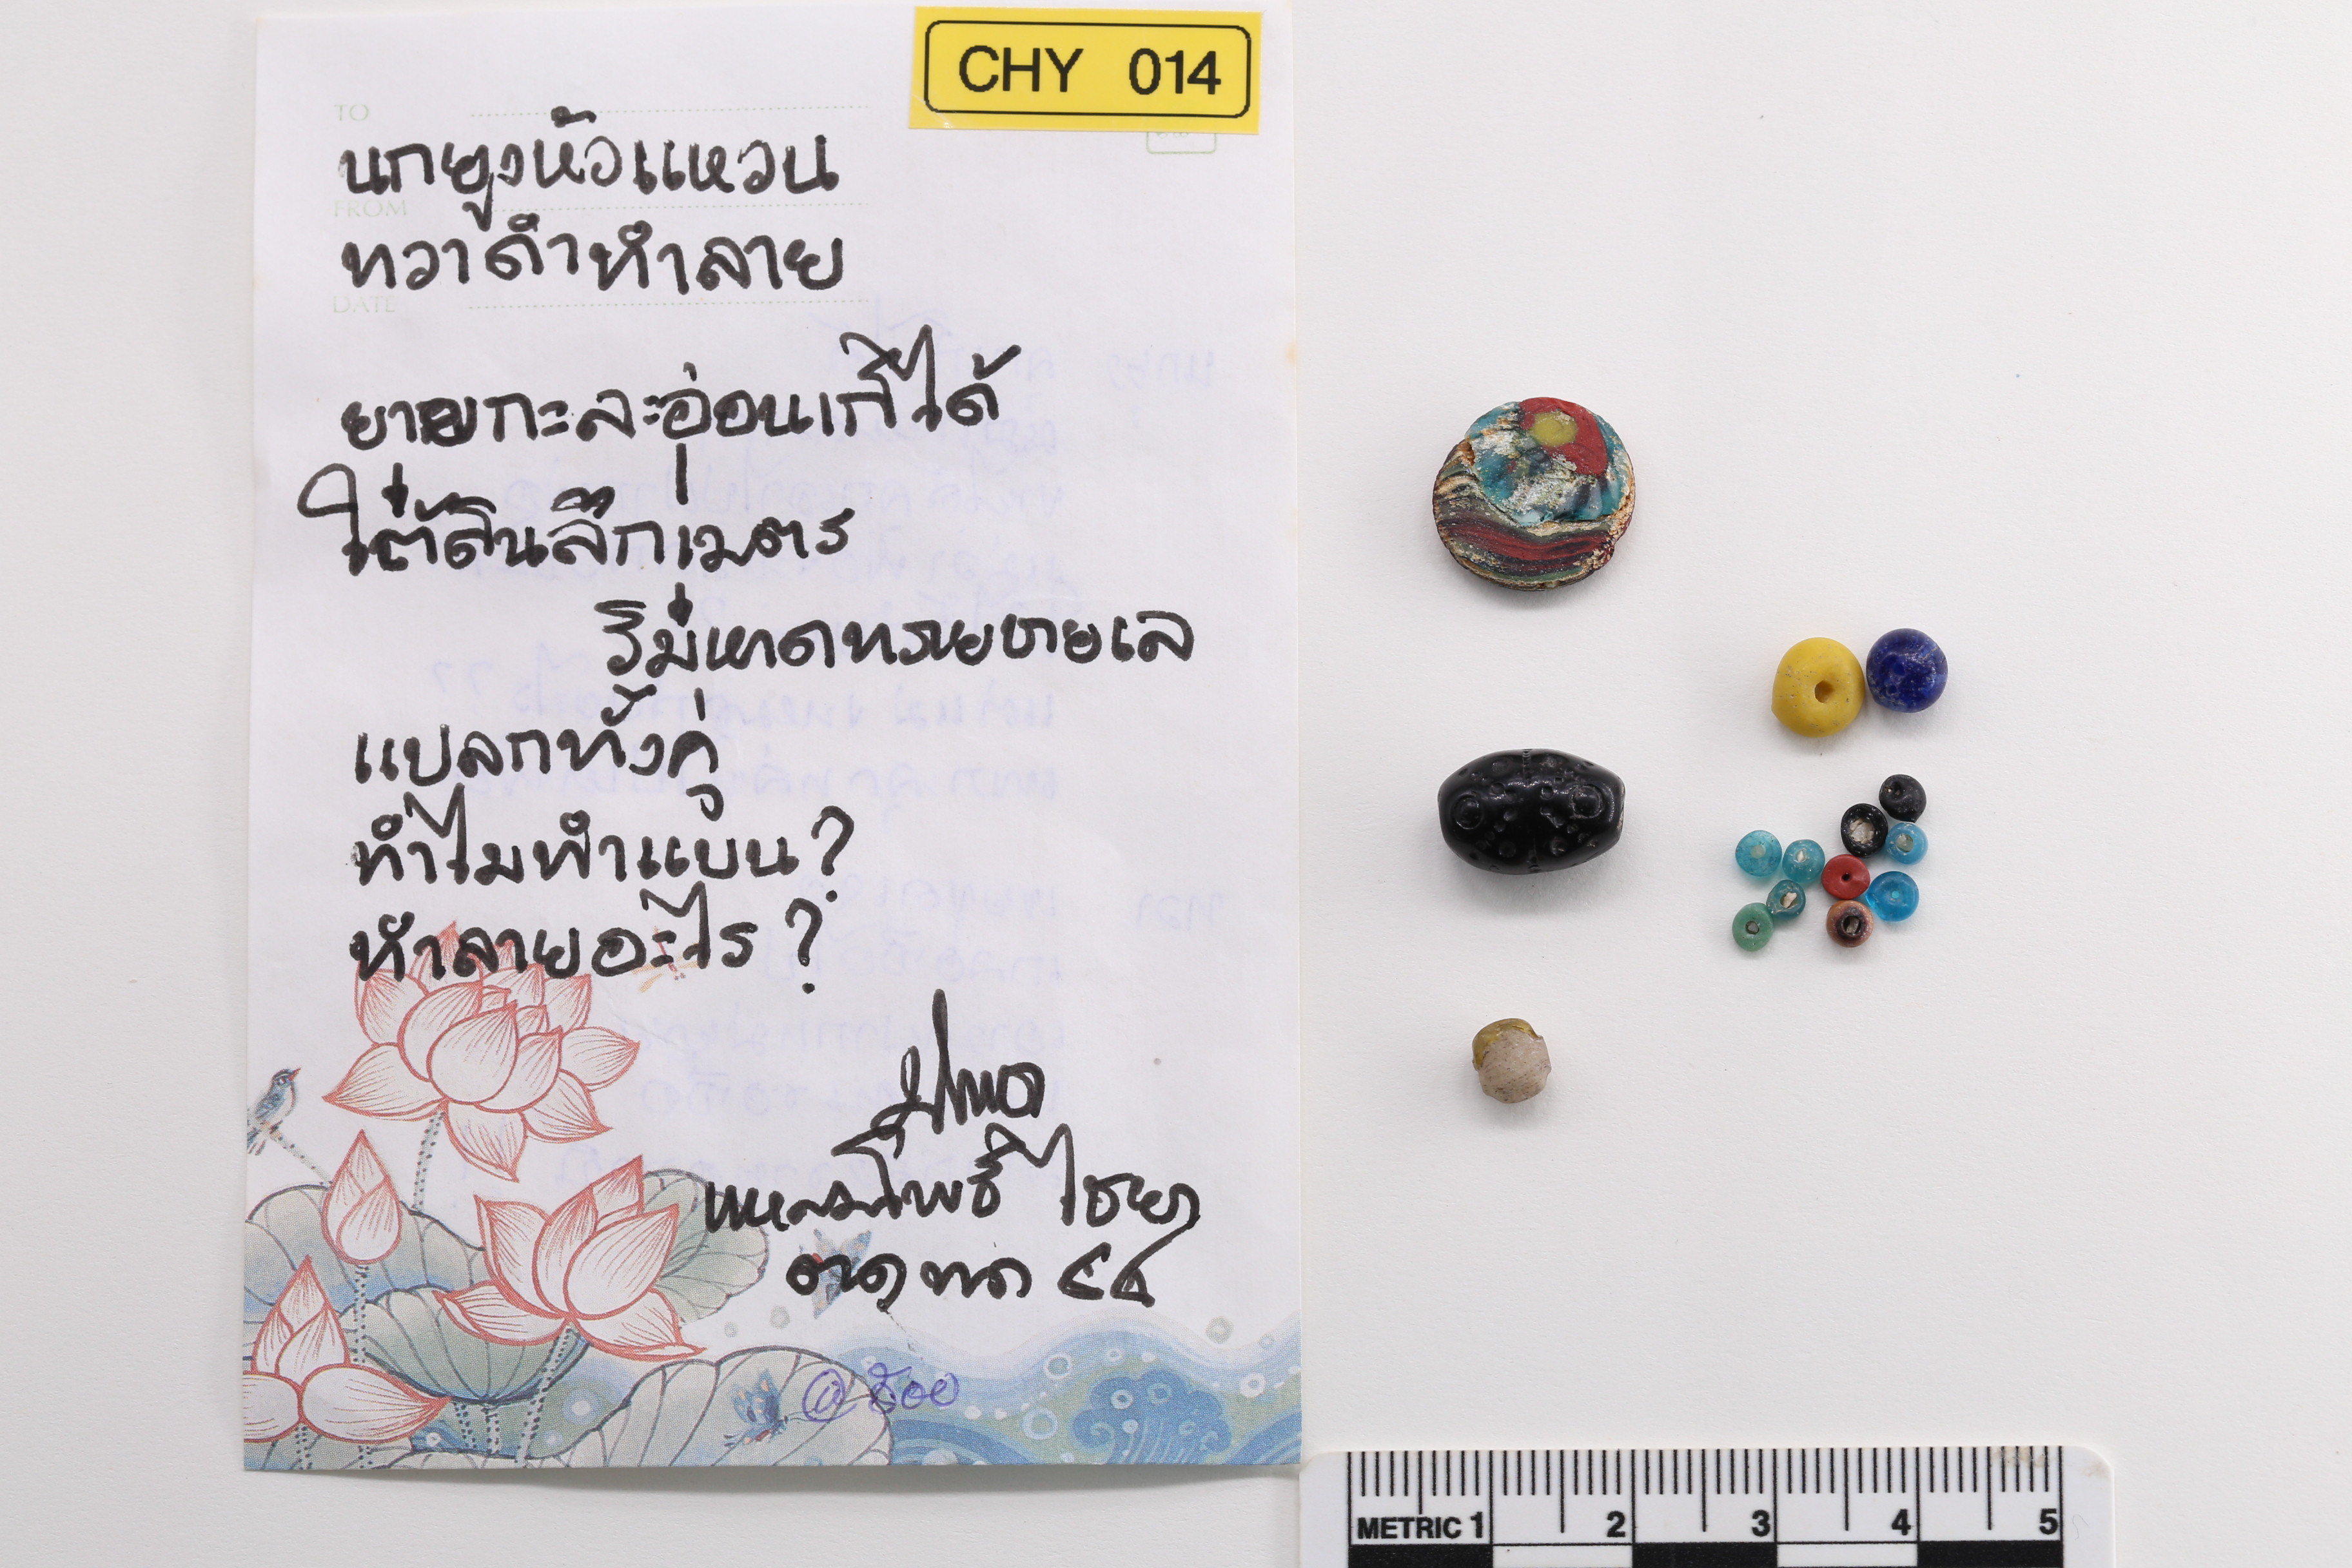 CHY 014
TO
นกยูงหัวแหวน
FROM
ทวาดำทำลาย
DATE
ยายกะละอ่อนเก็บได้
ใต้ดินลึกเมตร
ริมหาดทรายชายเล
แปลกทั้งคู่
ทำไมทำแบน?
ทำลายอะไร?
แหลมโพธิ์ ไชยา
๕๔
METRIC 1 2 3 4 5